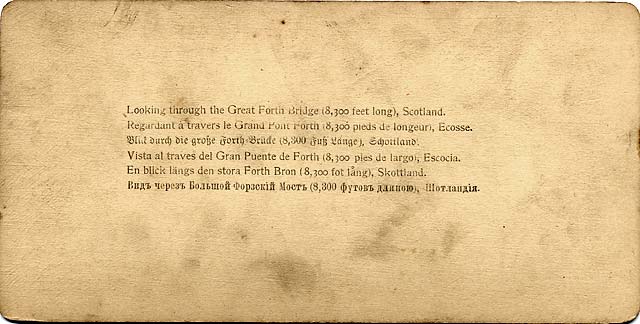 Looking through the Great Forth Bridge (8,300 feet long), Scotland.
Regardant à travers le Grand Pont Forth (8,300 pieds de longeur), Ecosse.
Blick durch die große Forth-Brücke (8,300 Fuß Länge), Schottland.
Vista al través del Gran Puente de Forth (8,300 pies de largo), Escocia.
En blick längs den stora Forth Bron (8,300 fot lång), Skottland.
Видъ черезъ Большой Форзскій Мостъ (8,300 футовъ длиною), Шотландія.